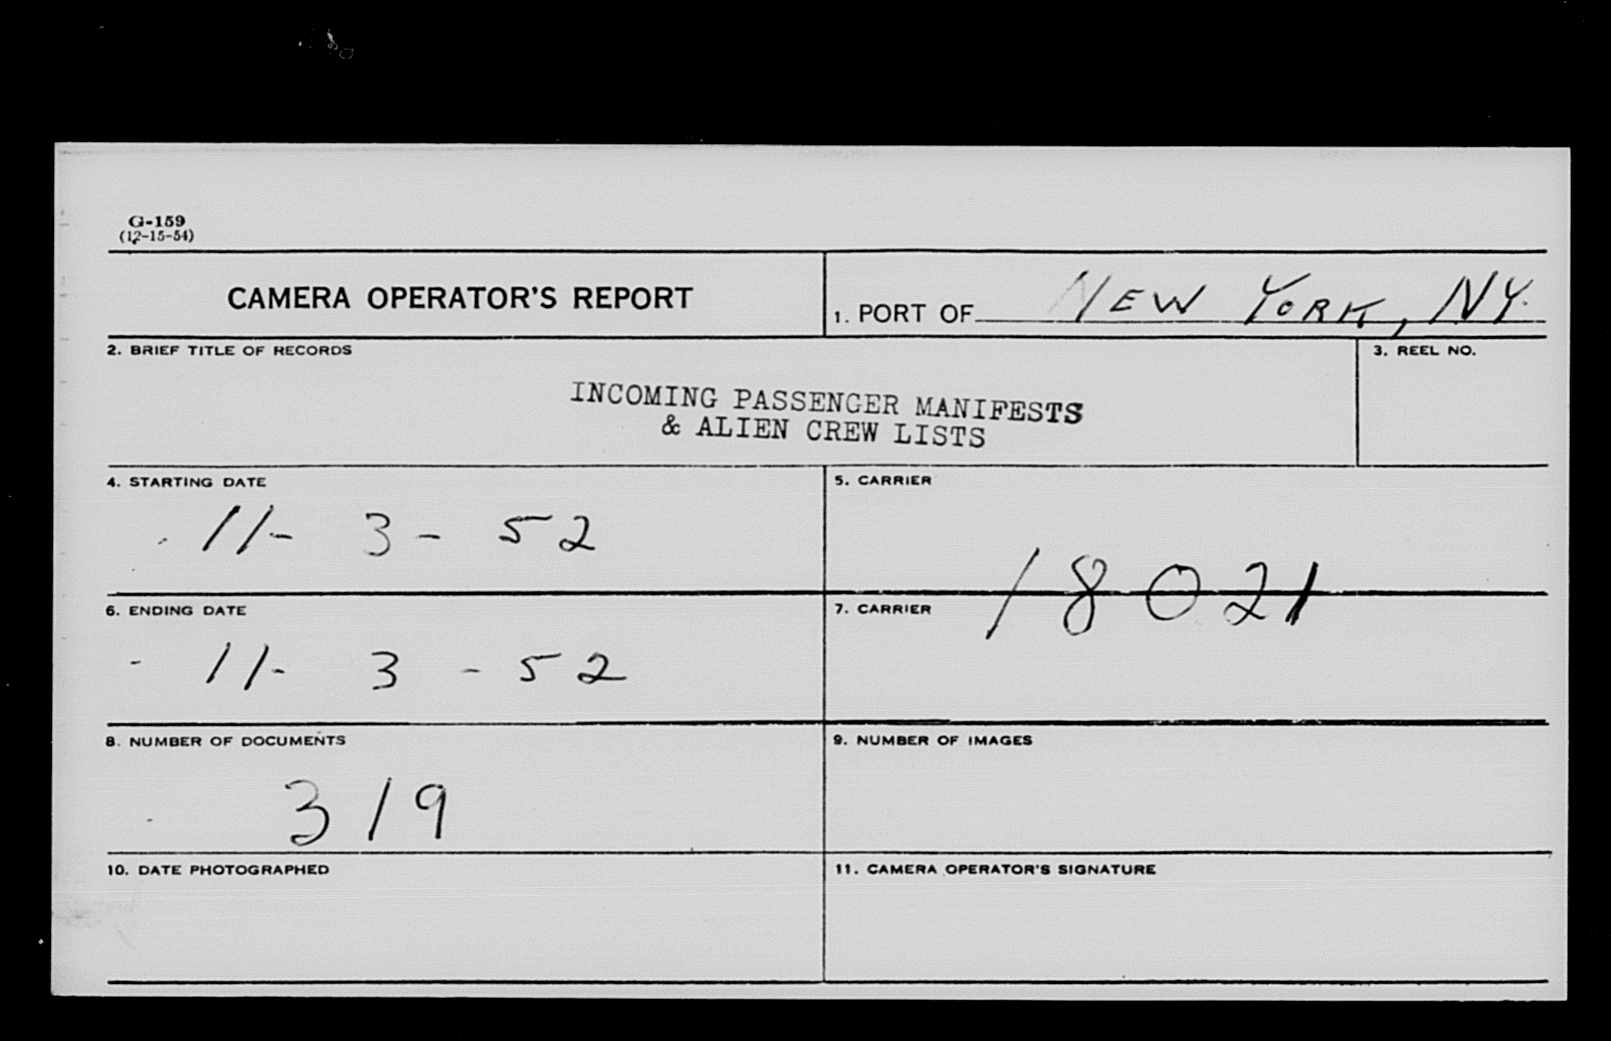 G-159
(12-15-54)
CAMERA OPERATOR'S REPORT
1. PORT OF NEW YORK, NY.
2. BRIEF TITLE OF RECORDS
3. REEL NO.
INCOMING PASSENGER MANIFESTS
& ALIEN CREW LISTS
4. STARTING DATE
11- 3 - 52
5. CARRIER
18021
6. ENDING DATE
- 11- 3 - 52
7. CARRIER
8. NUMBER OF DOCUMENTS
319
9. NUMBER OF IMAGES
10. DATE PHOTOGRAPHED
11. CAMERA OPERATOR'S SIGNATURE